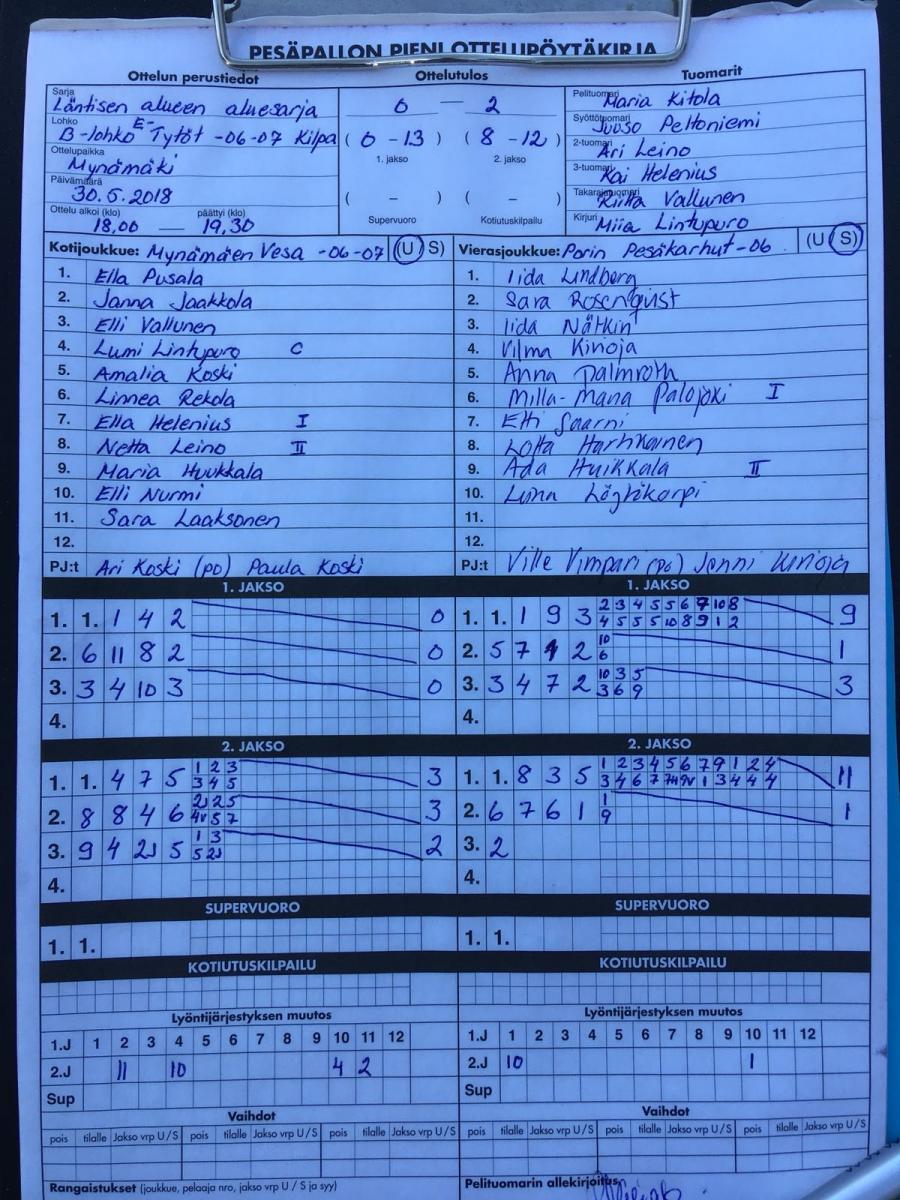 PESÄPALLON PIENI OTTELUPÖYTÄKIRJA
Ottelun perustiedot Ottelutulos Tuomarit
Sarja
Läntisen alueen aluesarja
0 — 2
Pelituomari
Maria Kitola
Lohko
B-lohko E-Tytöt -06-07 Kilpa
( 0 - 13 ) ( 8 - 12 )
1. jakso 2. jakso
Syöttötuomari
Juuso Peltoniemi
Ottelupaikka
Mynämäki
2-tuomari
Ari Leino
3-tuomari
Kai Helenius
Päivämäärä
30.5.2018
( - ) ( - )
Supervuoro Kotiutuskilpailu
Takarajatuomari
Riitta Vallunen
Ottelu alkoi (klo) päättyi (klo)
18,00 — 19,30
Kirjuri
Miia Lintupuro
Kotijoukkue: Mynämäen Vesa -06-07 (U S) Vierasjoukkue: Porin Pesäkarhut -06 (U S)
1. Ella Pusala 1. Iida Lindberg
2. Janna Jaakkola 2. Sara Rosenqvist
3. Elli Vallunen 3. Iida Nätkin
4. Lumi Lintupuro C 4. Vilma Kinoja
5. Amalia Koski 5. Anna Palmroth
6. Linnea Rekola 6. Milla-Maria Palojoki I
7. Ella Helenius I 7. Etti Saarni
8. Netta Leino II 8. Lotta Hartikainen
9. Maria Huukkala 9. Ada Huikkala II
10. Elli Nurmi 10.
11. Sara Laaksonen 11.
12. 12.
PJ:t Ari Koski (po) Paula Koski PJ:t Ville Vimpari (po) Jonni Kinoja
1. JAKSO 1. JAKSO
1. 1. 1 4 2 0 1. 1. 1 9 3 2 3 4 5 5 6 7 10 8 9
4 5 5 5 10 8 9 1 2
2. 6 11 8 2 0 2. 5 7 1 2 10 1
6
3. 3 4 10 3 0 3. 3 4 7 2 10 3 5 3
3 6 9
4. 4.
2. JAKSO 2. JAKSO
1. 1. 4 7 5 1 2 3 3 1. 1. 8 3 5 1 2 3 4 5 6 7 9 1 2 4 11
3 4 5 3 4 6 7 1 3 4 4 4
2. 8 8 4 6 2J 2 5 3 2. 6 7 6 1 1 1
4V 5 7 9
3. 9 4 2J 5 1 3 2 3. 2
5 2J
4. 4.
SUPERVUORO SUPERVUORO
1. 1. 1. 1.
KOTIUTUSKILPAILU KOTIUTUSKILPAILU
Lyöntijärjestyksen muutos Lyöntijärjestyksen muutos
1.J 1 2 3 4 5 6 7 8 9 10 11 12 1.J 1 2 3 4 5 6 7 8 9 10 11 12
2.J 11 10 4 2 2.J 10 1
Sup Sup
Vaihdot Vaihdot
pois tilalle Jakso vrp U / S pois tilalle Jakso vrp U / S pois tilalle Jakso vrp U / S pois tilalle Jakso vrp U / S pois tilalle Jakso vrp U / S pois tilalle Jakso vrp U / S
Rangaistukset (joukkue, pelaaja nro, jakso, vrp U / S ja syy) Pelituomarin allekirjoitus